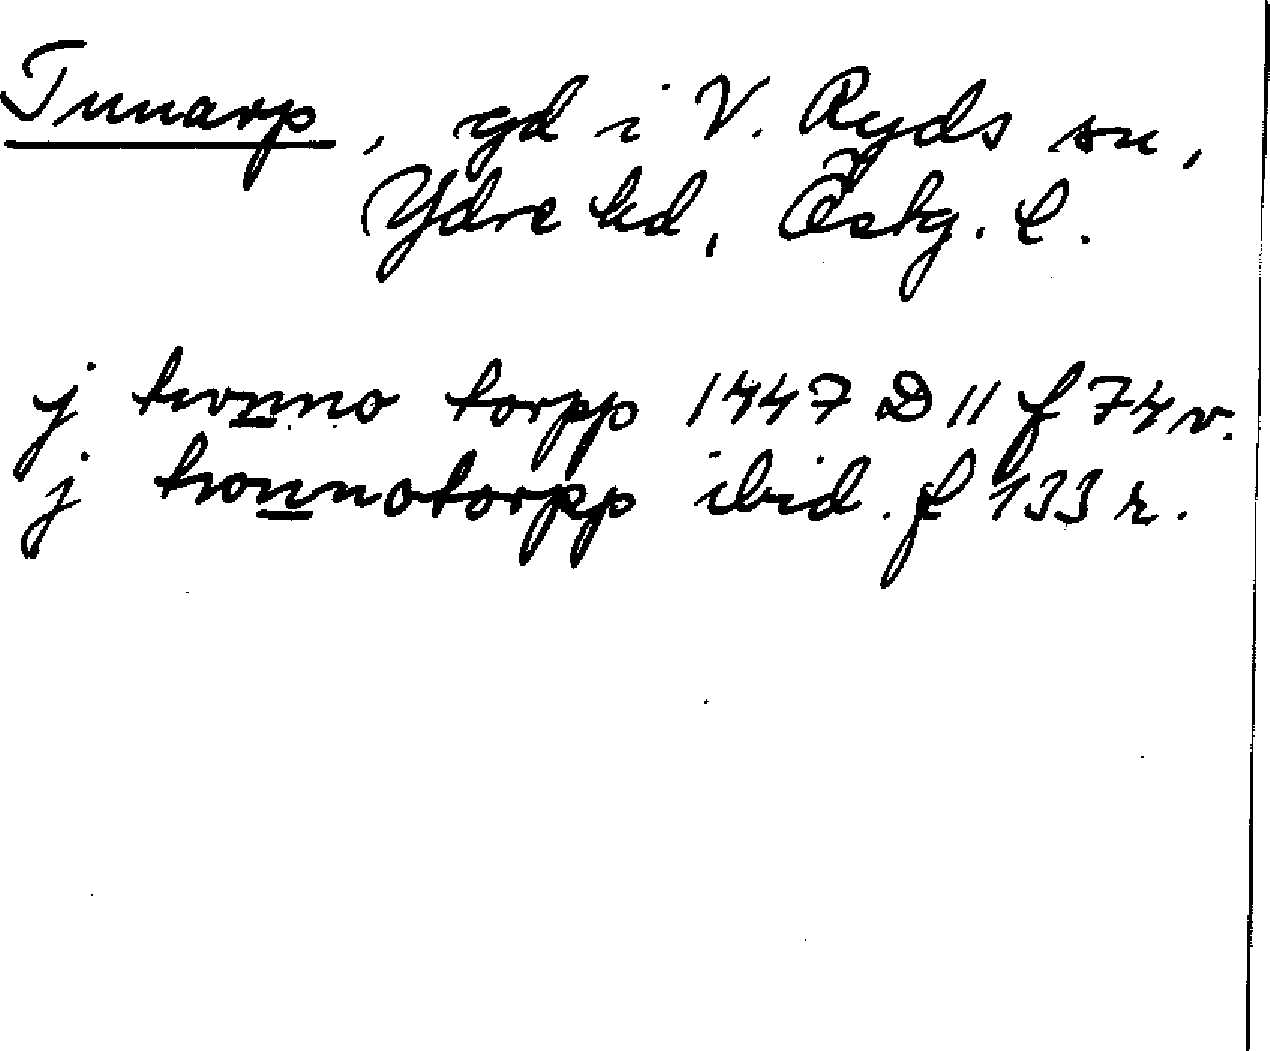 Tunarp, gd i V. Ryds sn,
Ydre hd, Östg. l.
j twnno torpp 1447 D 11 f 74v.
j ibid. f 133 r.